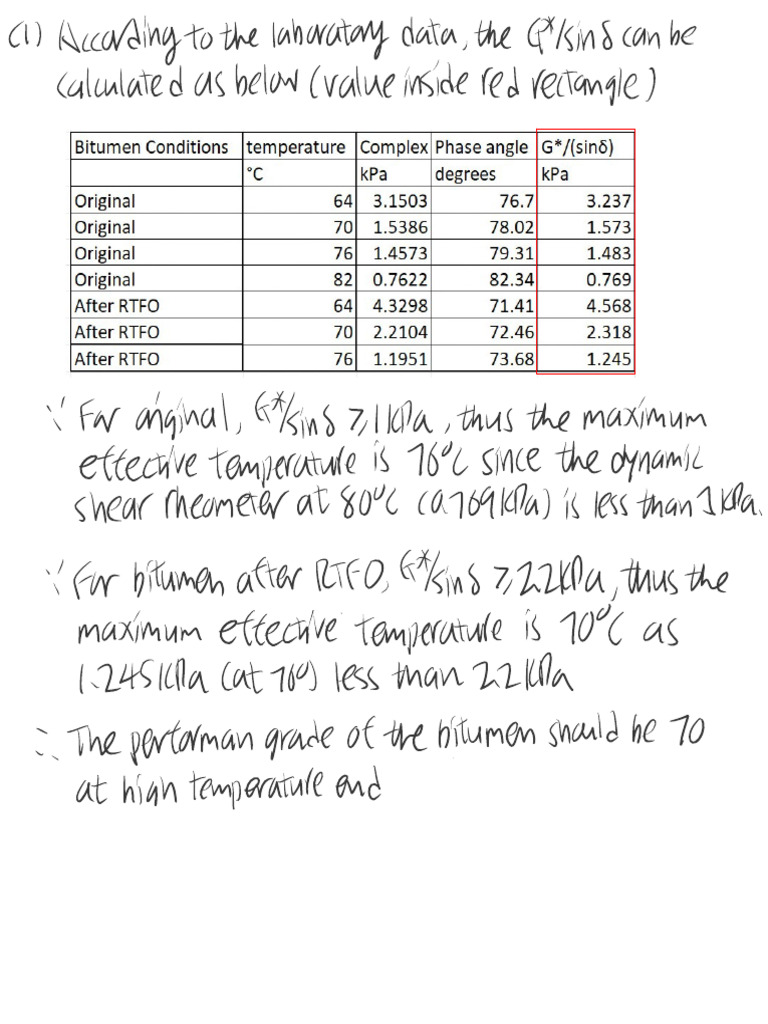 (1) According to the laboratory data, the G*/sinδ can be
calculated as below (value inside red rectangle)
Bitumen Conditions temperature Complex Phase angle G*/(sinδ)
°C kPa degrees kPa
Original 64 3.1503 76.7 3.237
Original 70 1.5386 78.02 1.573
Original 76 1.4573 79.31 1.483
Original 82 0.7622 82.34 0.769
After RTFO 64 4.3298 71.41 4.568
After RTFO 70 2.2104 72.46 2.318
After RTFO 76 1.1951 73.68 1.245
∵ For original, G*/sinδ ≥ 1kPa, thus the maximum
effective temperature is 76°C since the dynamic
shear rheometer at 80°C (0.769kPa) is less than 1kPa.
∵ For bitumen after RTFO, G*/sinδ ≥ 2.2kPa, thus the
maximum effective temperature is 70°C as
1.245kPa (at 76°) less than 2.2kPa
∴ The performan grade of the bitumen should be 70
at high temperature end